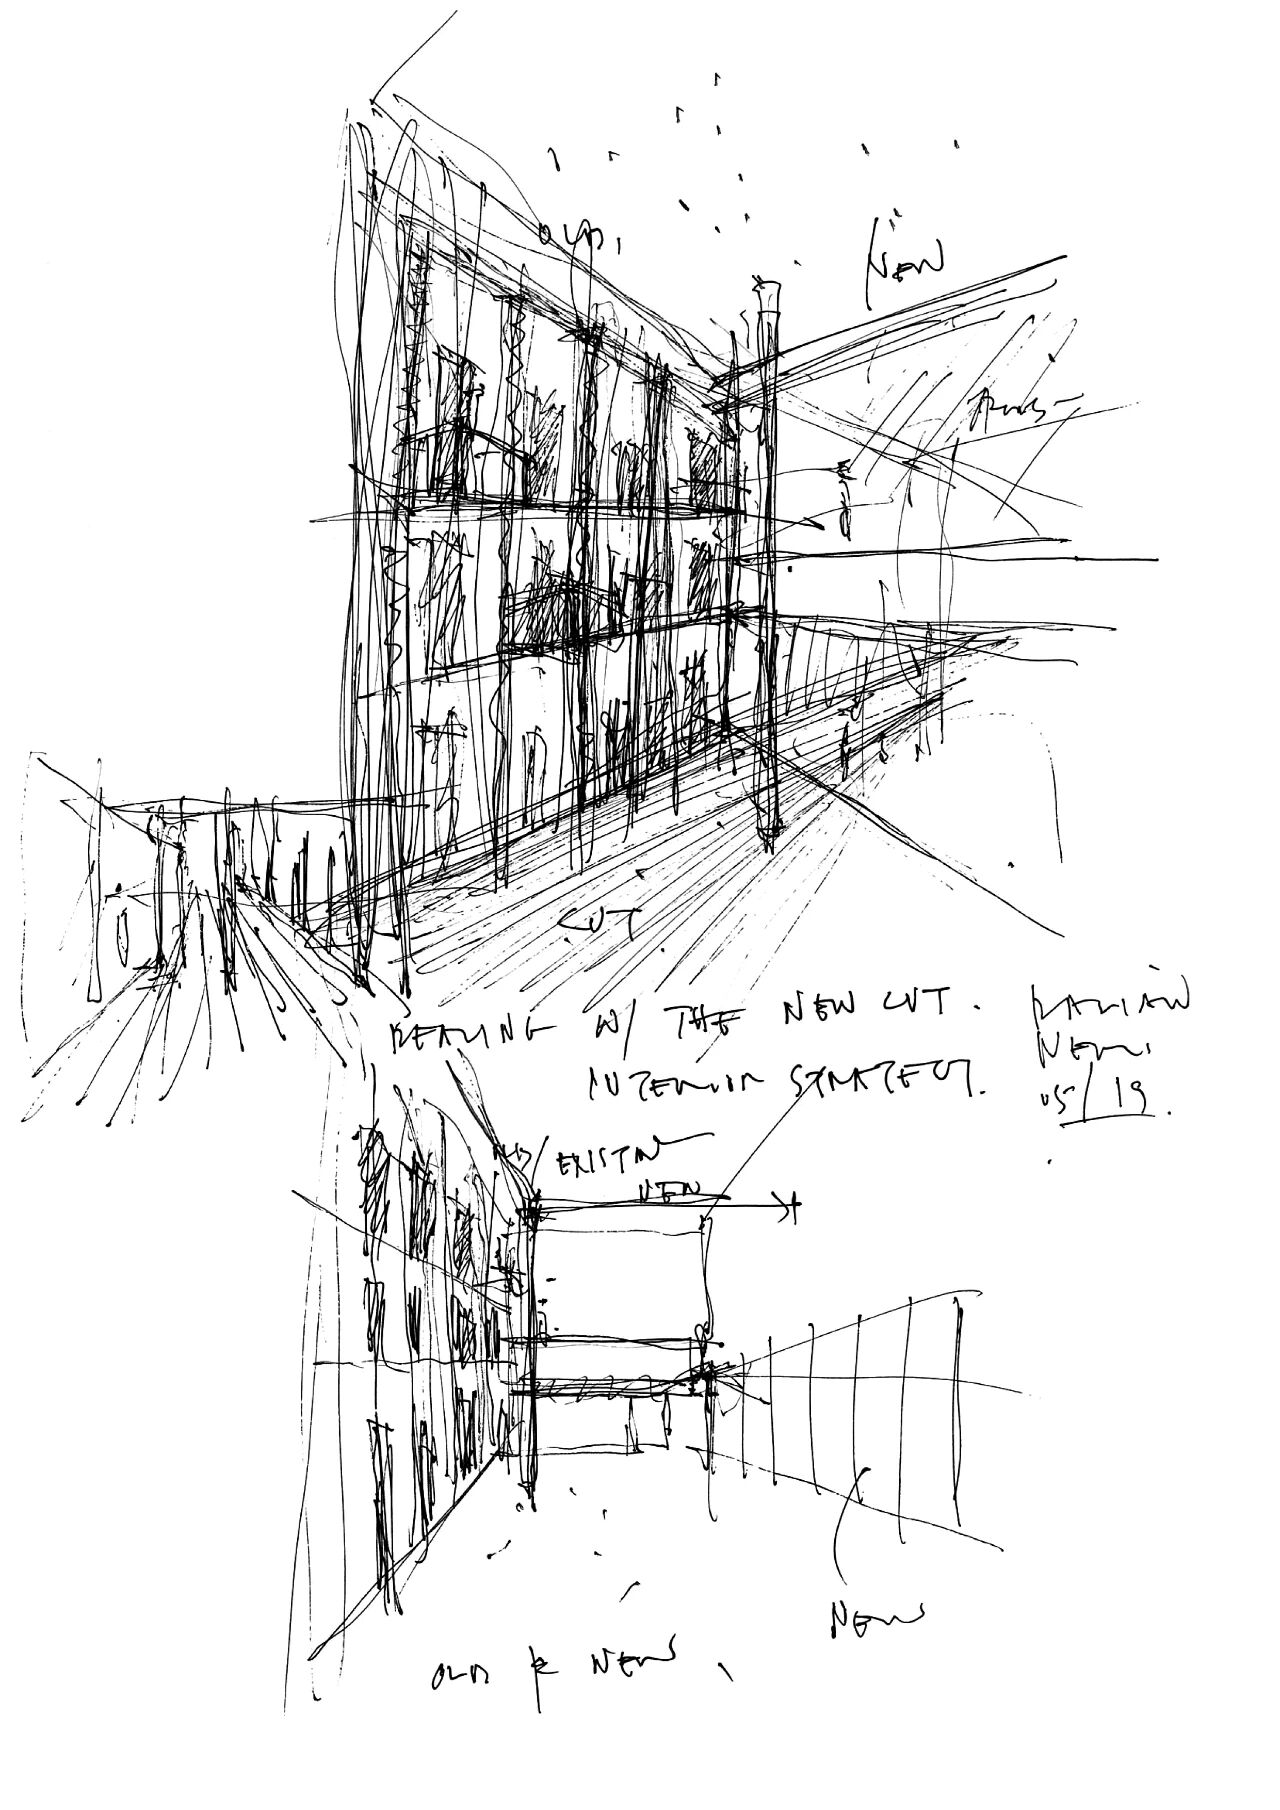 OLD,
NEW
CUT
DEALING W/ THE NEW CUT.
INTERIOR STRATEGY.
05/19.
EXISTING
NEW
NEW
OLD & NEW,